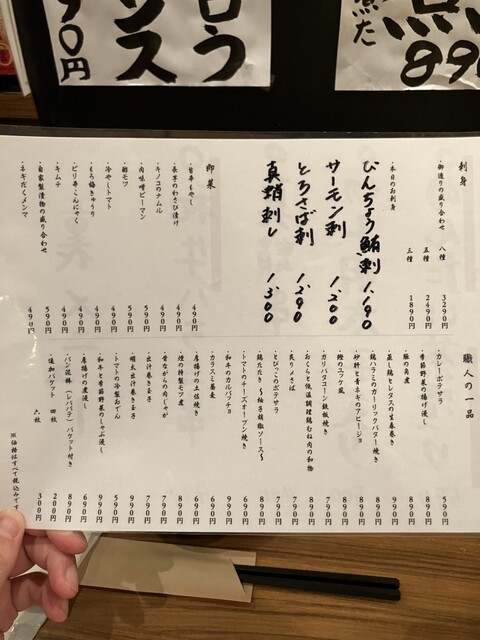 ロう
ソス
90円
煮た
890
刺身
・御造りの盛り合わせ 八種 3290円
五種 2490円
三種 1890円
・本日のお刺身
びんちょう鮪刺 1,190
サーモン刺 1,200
とろさば刺 1,290
真蛸刺し 1,300
即菜
・旨辛もやし 490円
・長芋のわさび漬け 490円
・キノコのナムル 490円
・肉味噌ピーマン 590円
・酢モツ 590円
・冷やしトマト 490円
・もろ梅きゅうり 490円
・ピリ辛こんにゃく 490円
・キムチ 490円
・自家製漬物の盛り合わせ 590円
・ネギだくメンマ 490円
職人の一品
・カレーポテサラ 590円
・季節野菜の揚げ浸し 890円
・豚の角煮 890円
・蒸し鶏とレタスの生春巻き 990円
・鶏ハラミのガーリックバター焼き 890円
・砂肝と青ネギのアヒージョ 890円
・鰹のユッケ風 890円
・ガリバタコーン鉄板焼き 790円
・おくらと低温調理鶏むね肉の和物 890円
・炙り〆さば 790円
・とびっこのポテサラ 790円
・鶏たたき 〜柚子胡椒ソース〜 890円
・トマトのチーズオーブン焼き 690円
・和牛のカルパッチョ 990円
・カラスミ蕎麦 690円
・厚揚げの土佐焼き 690円
・煙の特製モツ煮 890円
・昔ながらの肉じゃが 790円
・出汁巻き玉子 790円
・明太出汁巻き玉子 990円
・トマトの冷製おでん 590円
・和牛と季節野菜のしゃぶ浸し 990円
・厚揚げの煮浸し 690円
・パン泥棒（レバパテ）バケット付き 890円
・追加バケット 四枚 200円
六枚 300円
※価格はすべて税込みです